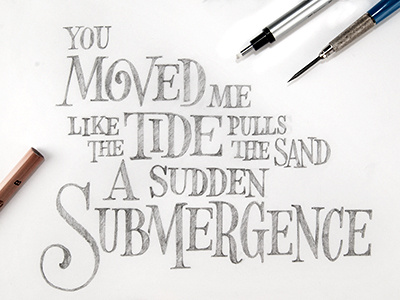 YOU
MOVED ME
LIKE THE TIDE PULLS THE SAND
A SUDDEN
SUBMERGENCE